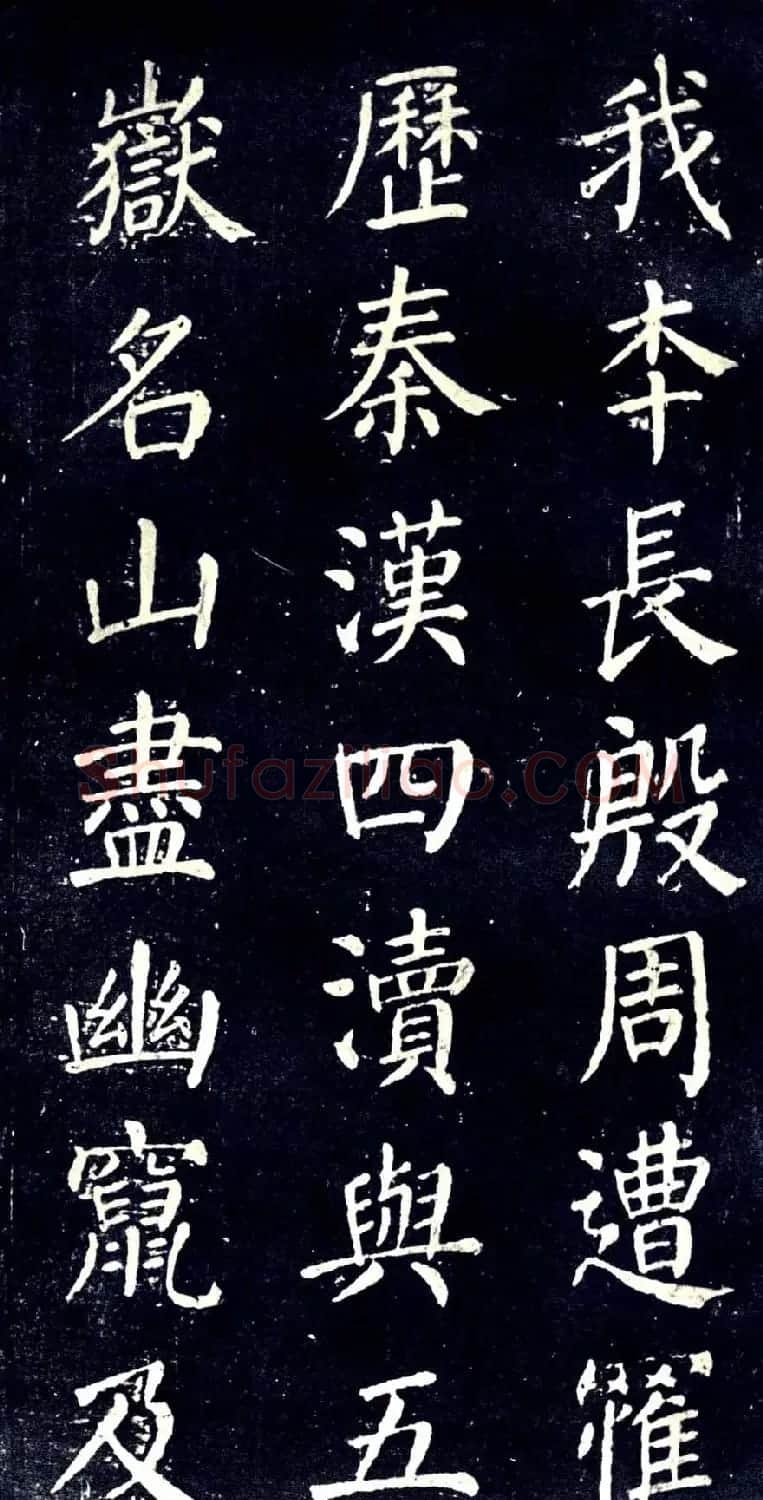 我本長殷周遭
歷秦漢四瀆與五
嶽名山盡幽竄及
Shufaziliao.COM